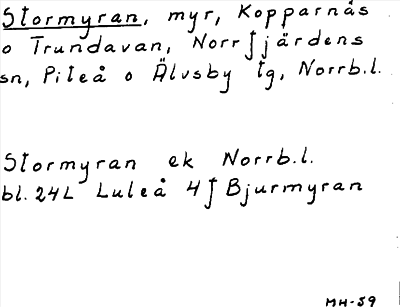 Stormyran, myr, Kopparnäs
o Trundavan, Norrfjärdens
sn, Piteå o Älvsby tg, Norrb.l.
Stormyran ek Norrb.l.
bl. 24L Luleå 4f Bjurmyran
MH-59